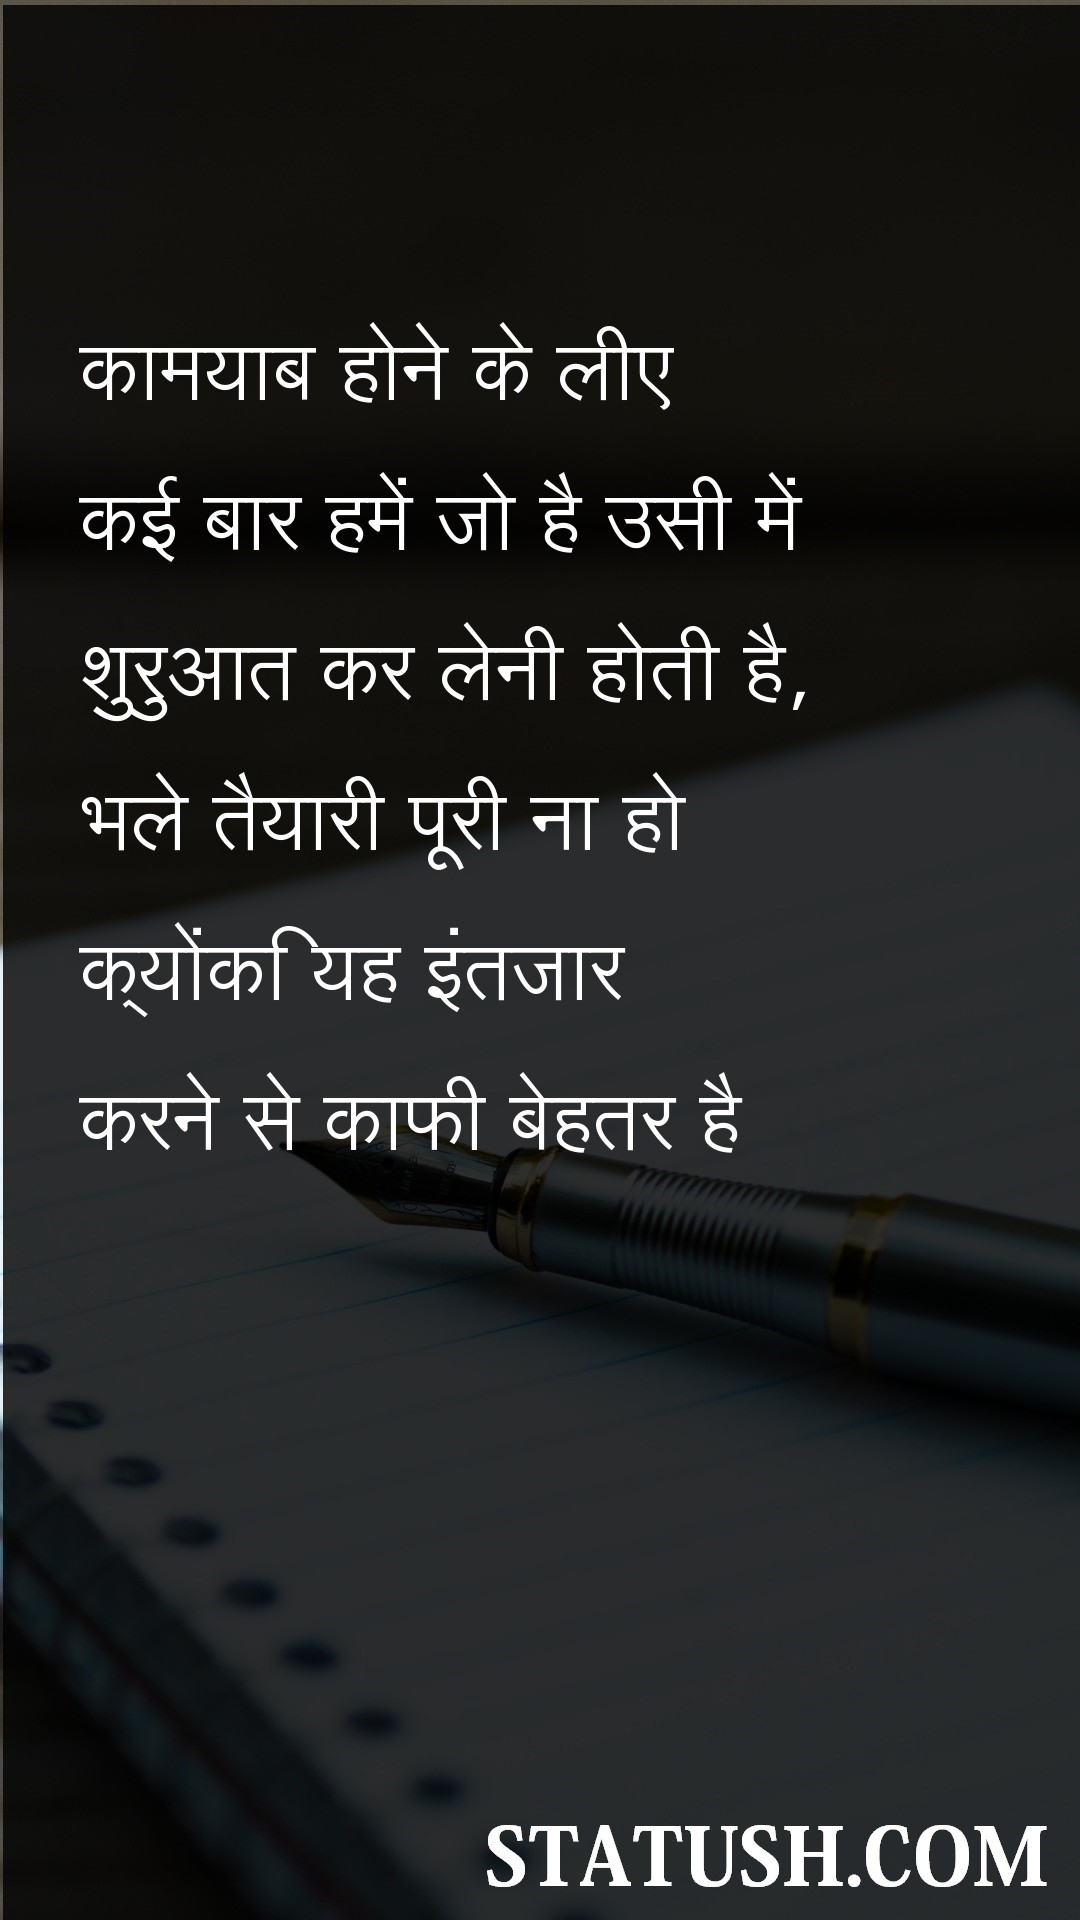 कामयाब होने के लीए
कई बार हमें जो है उसी में
शुरुआत कर लेनी होती है,
भले तैयारी पूरी ना हो
क्योंकि यह इंतजार
करने से काफी बेहतर है
STATUSH.COM